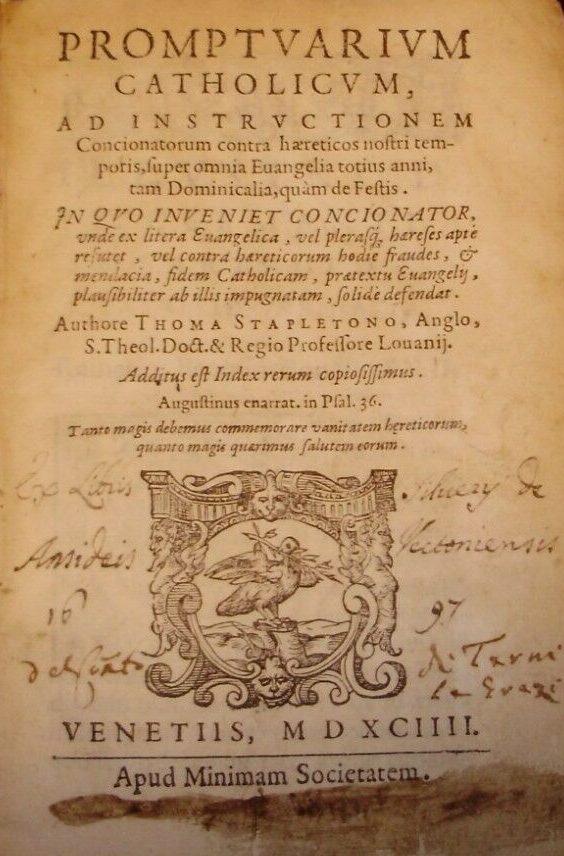 PROMPTVARIVM
CATHOLICVM,
AD INSTRVCTIONEM
Concionatorum contra hæreticos noſtri tem-
poris, ſuper omnia Euangelia totius anni,
tam Dominicalia, quàm de Feſtis.
IN QVO INVENIET CONCIONATOR,
vnde ex litera Euangelica, vel pleraſq; hæreſes aptè
refutet, vel contra hæreticorum hodie fraudes, &
mendacia, fidem Catholicam, prætextu Euangelij,
plauſibiliter ab illis impugnatam, ſolidè defendat.
Authore THOMA STAPLETONO, Anglo,
S. Theol. Doct. & Regio Profeſſore Louanij.
Additus eſt Index rerum copioſiſſimus.
Auguſtinus enarrat. in Pſal. 36.
Tanto magis debemus commemorare vanitatem hęreticorum,
quanto magis quærimus ſalutem eorum.
Ex Libris
de
16 97
VENETIIS, M D XCIIII.
Apud Minimam Societatem.